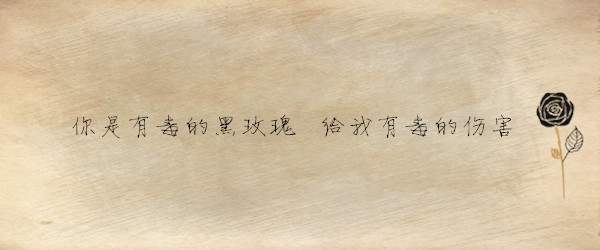 你是有毒的黑玫瑰 给我有毒的伤害